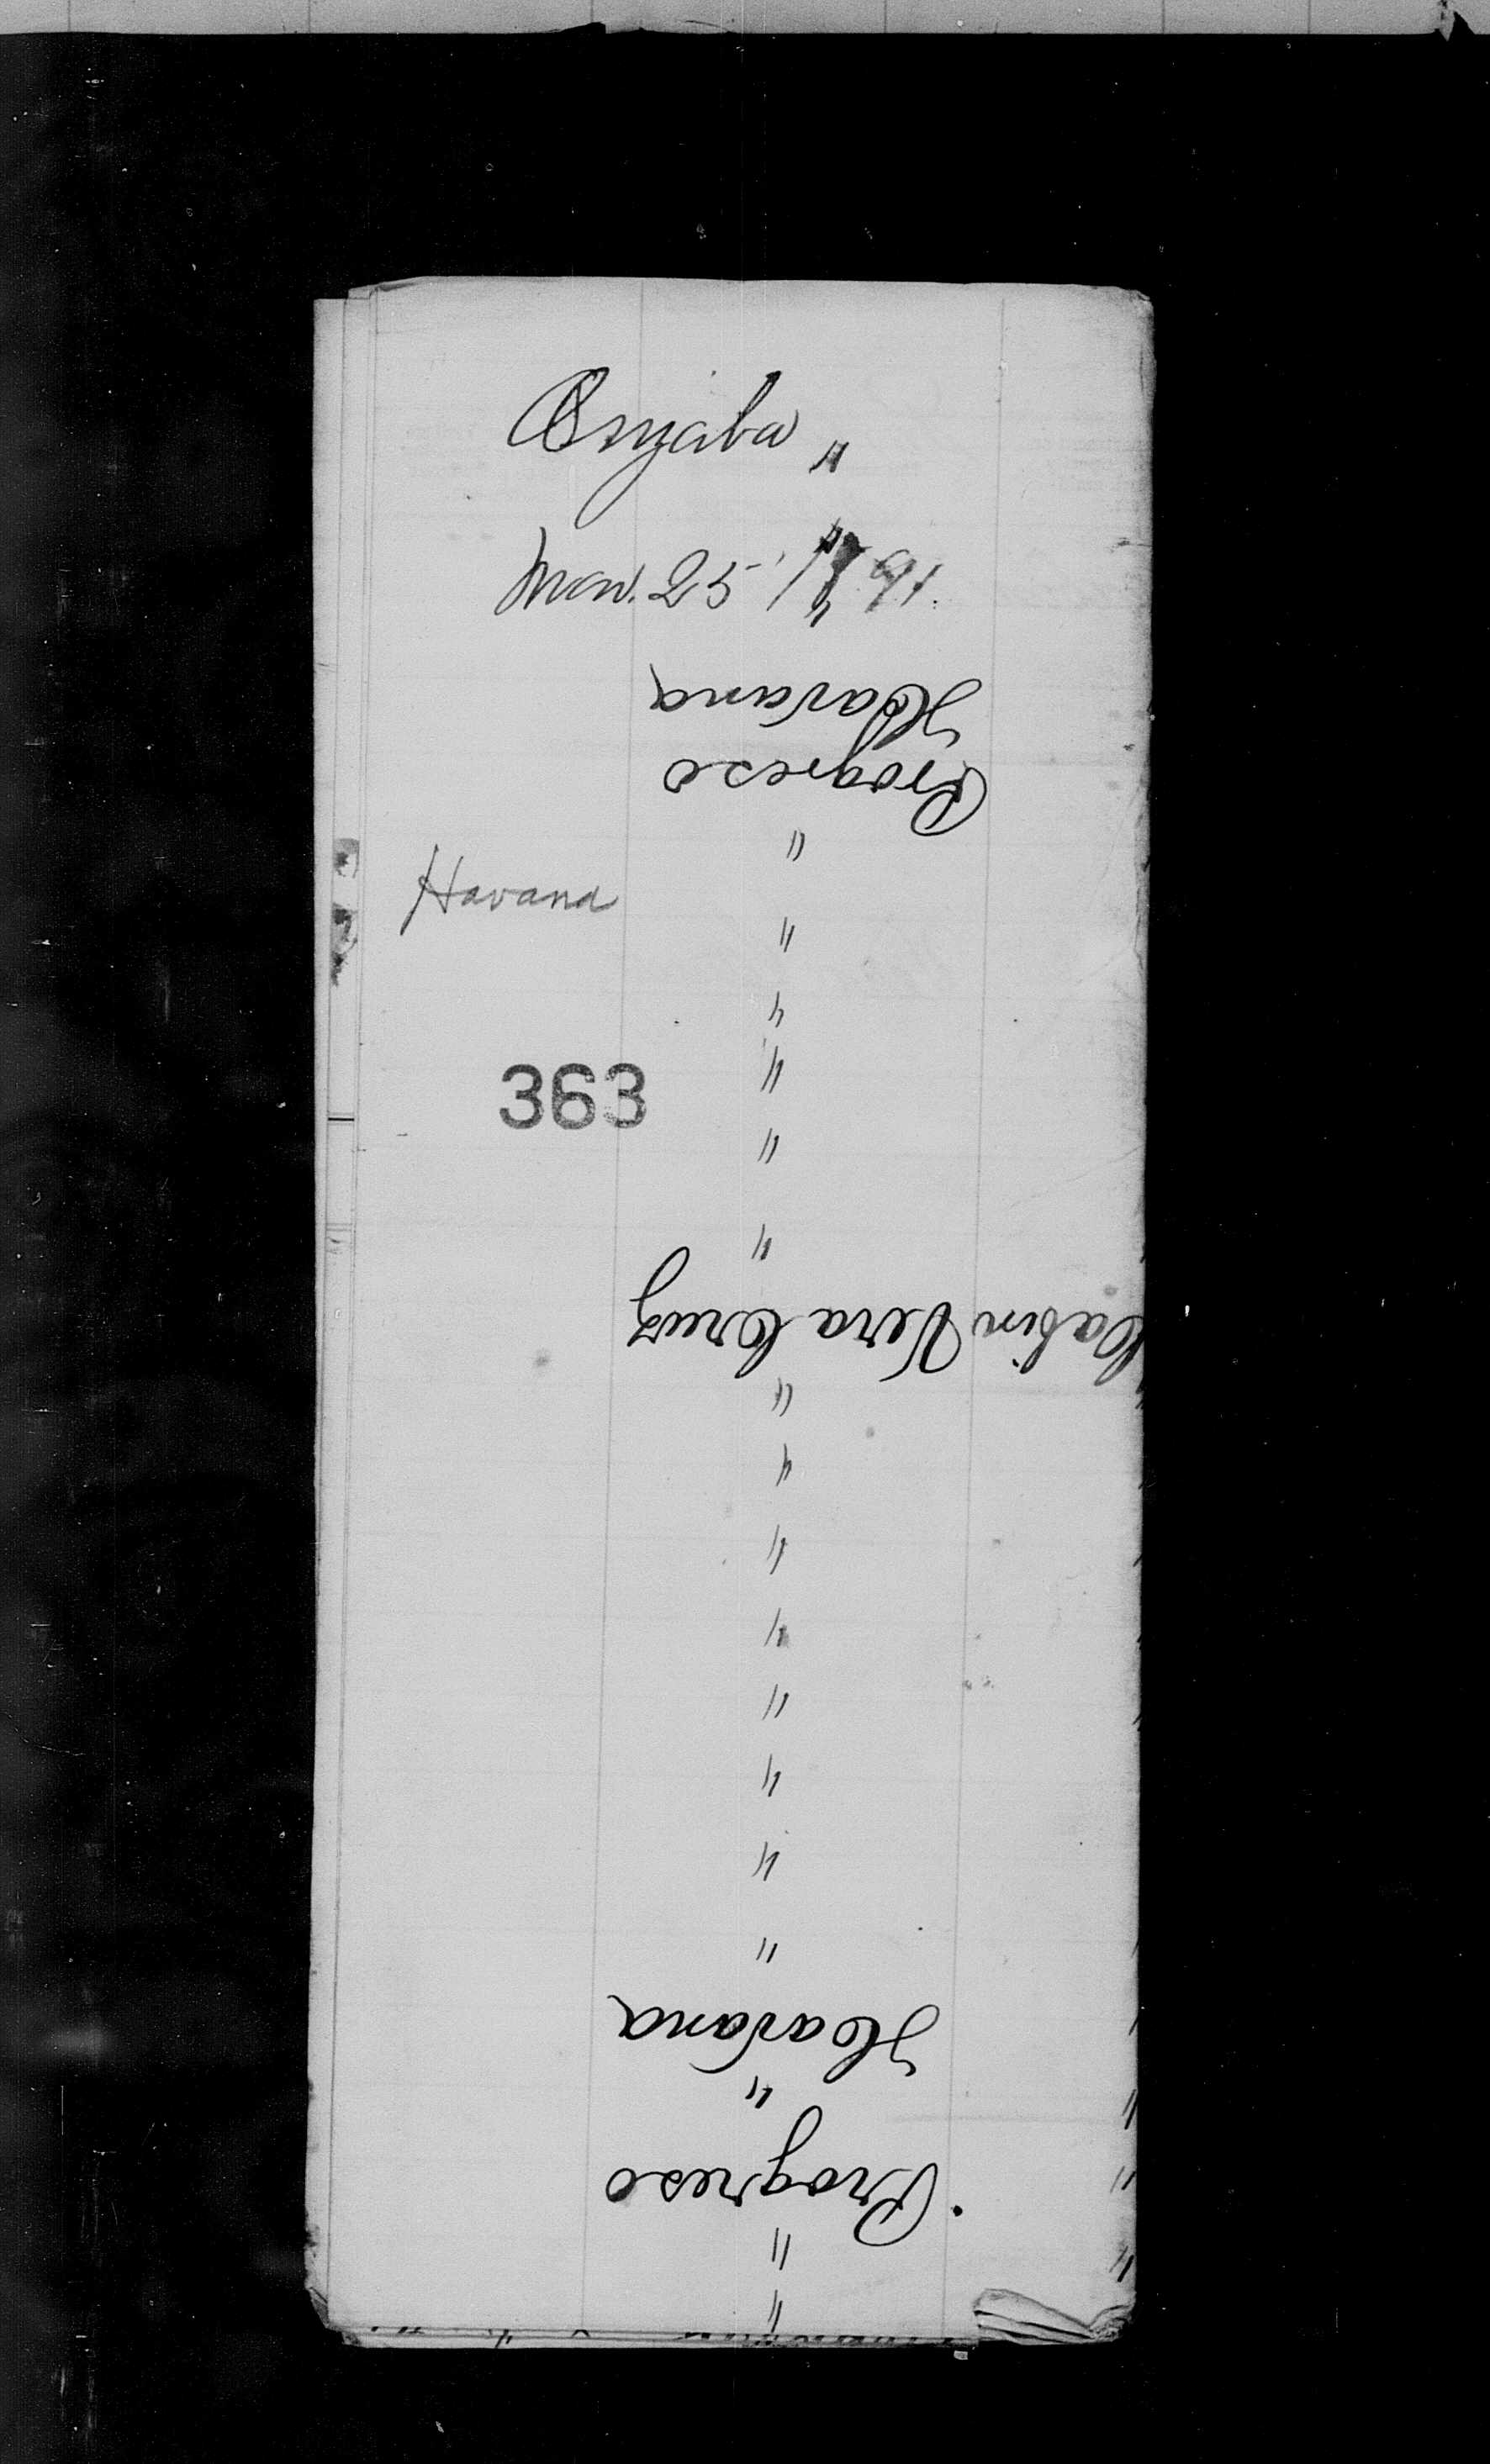 Orizaba "
Mar. 25, 1891.
Havana
363
"
"
Progreso
"
Havana
"
"
"
"
"
"
"
"
Cabin Vera Cruz
"
"
"
"
"
"
Progreso
Havana